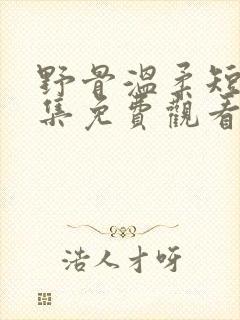 野骨溫柔短
集免費觀看
浩人才呀